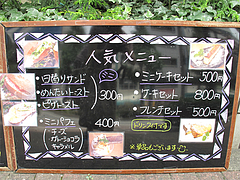 人気メニュー
・日替りサンド
・めんたいトースト
・ピザトースト
300円
・ミニパフェ 400円
チーズ
ガトーショコラ
キャラメル
・ミニケーキセット 500円
・ケーキセット 800円
・フレンチセット 500円
ドリンク付です
※単品もございます